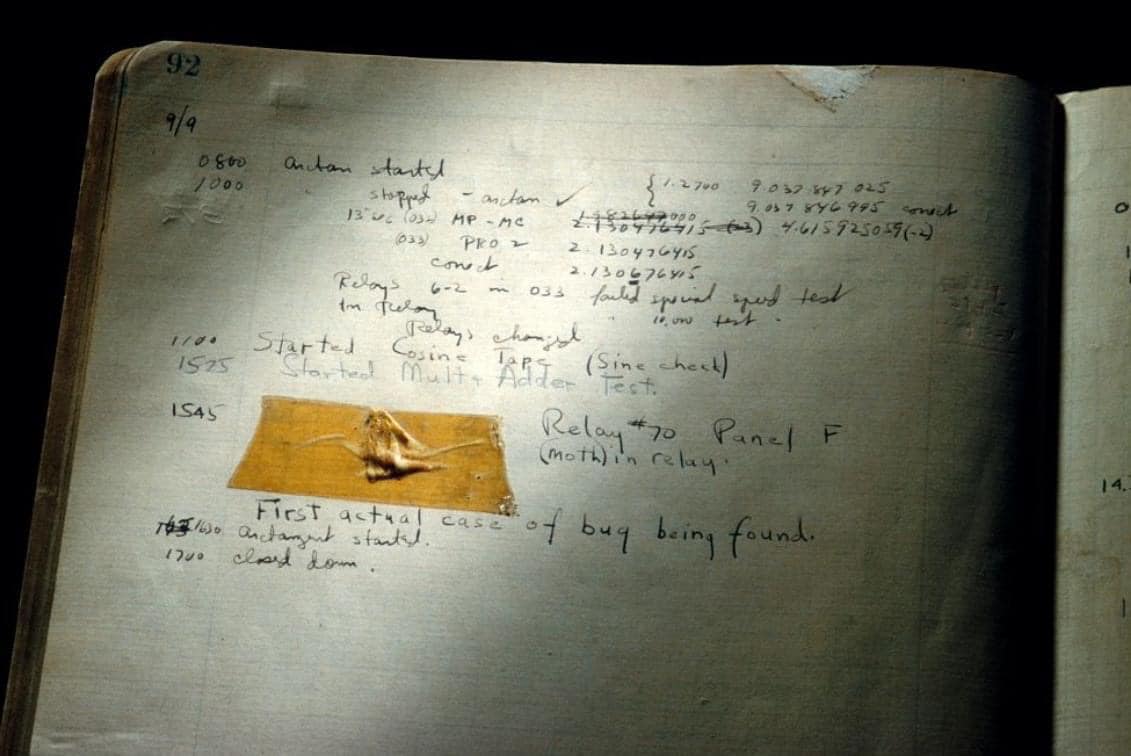 92
9/9
0800 arctan started
1000 " stopped - arctan ✓ { 1.2700 9.037 847 025
13"uc (032) MP - MC 9.037 846 995 conect
2.130476415 (-3) 4.615925059(-2)
(033) PRO 2 2.130476415
conect 2.130676415
Relays 6-2 in 033 failed special speed test
in Relay " 10.000 test.
Relays changed
1100 Started Cosine Tape (Sine check)
1525 Started Mult + Adder Test.
1545 Relay #70 Panel F
(Moth) in relay.
First actual case of bug being found.
1630 arctangent started.
1700 closed down.
14.